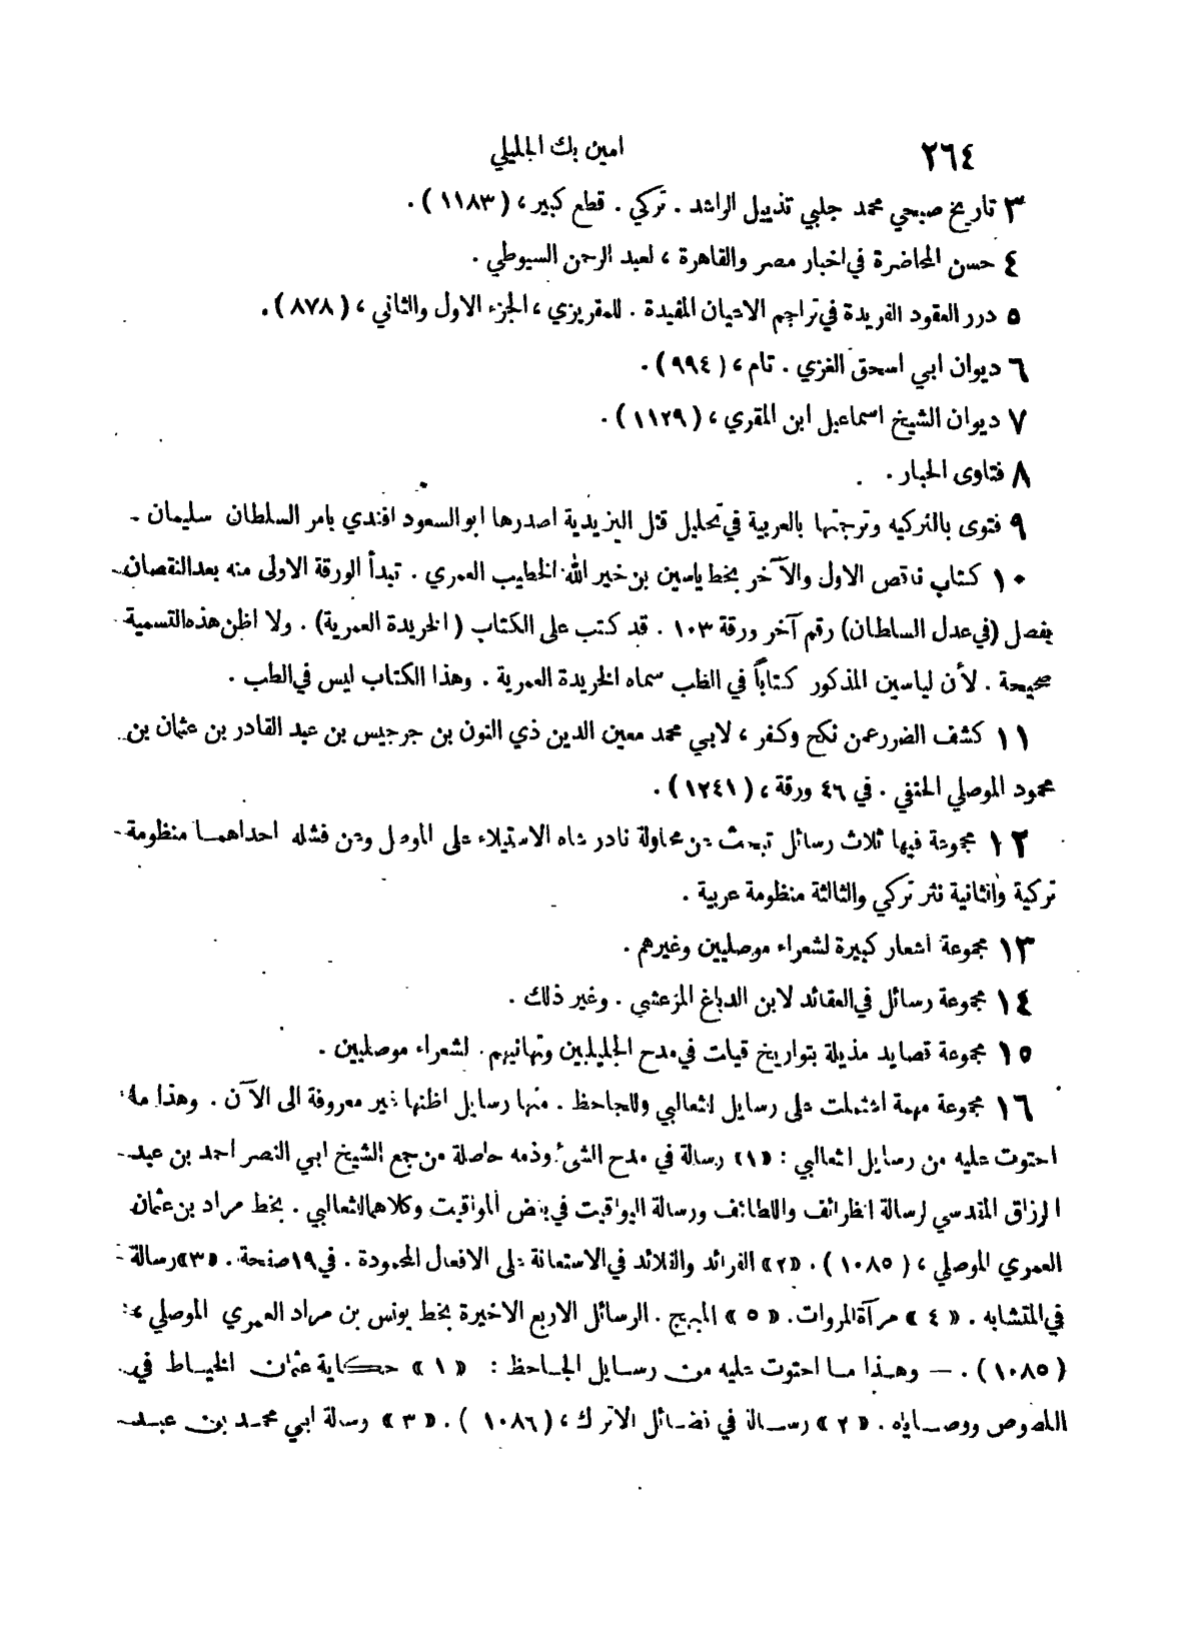 ٢٦٤ امين بك الجليلي
٣ تاريخ صبحي محمد جلبي تذييل الراشد . تركي . قطع كبير ، (١١٨٣) .
٤ حسن المحاضرة في اخبار مصر والقاهرة ، لعبد الرحمن السيوطي .
٥ درر العقود الفريدة في تراجم الاعيان المفيدة . للمقريزي ، الجزء الاول والثاني ، (٨٧٨) .
٦ ديوان ابي اسحق الغزي . تام ، (٩٩٤) .
٧ ديوان الشيخ اسماعيل ابن المقري ، (١١٢٩) .
٨ فتاوى الحبار .
٩ فتوى بالتركيه وترجمتها بالعربية في تحليل قتل اليزيدية اصدرها ابو السعود افندي بامر السلطان سليمان .
١٠ كتاب ناقص الاول والآخر بخط ياسين بن خير الله الخطيب العمري . تبدأ الورقة الاولى منه بعد النقصان
بفصل (في عدل السلطان) رقم آخر ورقة ١٠٣ . قد كتب على الكتاب (الخريدة العمرية) . ولا اظن هذه التسمية
صحيحة . لأن لياسين المذكور كتاباً في الطب سماه الخريدة العمرية . وهذا الكتاب ليس في الطب .
١١ كشف الضرر عمن نكح وكفر ، لابي محمد معين الدين ذي النون بن جرجيس بن عبد القادر بن عثمان بن
محمود الموصلي الحنفي . في ٤٦ ورقة ، (١٢٤١) .
١٢ مجموعة فيها ثلاث رسائل تبحث عن محاولة نادر شاه الاستيلاء على الموصل وعن فشله احداهما منظومة
تركية والثانية نثر تركي والثالثة منظومة عربية .
١٣ مجموعة اشعار كبيرة لشعراء موصليين وغيرهم .
١٤ مجموعة رسائل في العقائد لابن الدباغ المزعشي . وغير ذلك .
١٥ مجموعة قصايد مذيلة بتواريخ قيلت في مدح الجليليين وتهانيهم . لشعراء موصليين .
١٦ مجموعة مهمة اشتملت على رسايل الثعالبي وللجاحظ . منها رسايل اظنها غير معروفة الى الآن . وهذا ما
احتوت عليه من رسايل الثعالبي : «١» رسالة في مدح الشئ وذمه حاصلة من جمع الشيخ ابي النصر احمد بن عبد
الرزاق المقدسي لرسالة الظرائف واللطائف ورسالة اليواقيت في بعض المواقيت وكلاهما للثعالبي . بخط مراد بن عثمان
العمري الموصلي ، (١٠٨٥) . «٢» الفرائد والقلائد في الاستعانة على الافعال المحمودة . في ١٩ صفحة . «٣» رسالة
في المتشابه . «٤» مرآة المروات . «٥» المبهج . الرسائل الاربع الاخيرة بخط يونس بن مراد العمري الموصلي ،
(١٠٨٥) . — وهذا ما احتوت عليه من رسايل الجاحظ : «١» حكاية عثمان الخياط في
اللصوص ووصاياه . «٢» رسالة في فضائل الاترك ، (١٠٨٦) . «٣» رسالة ابي محمد بن عبد